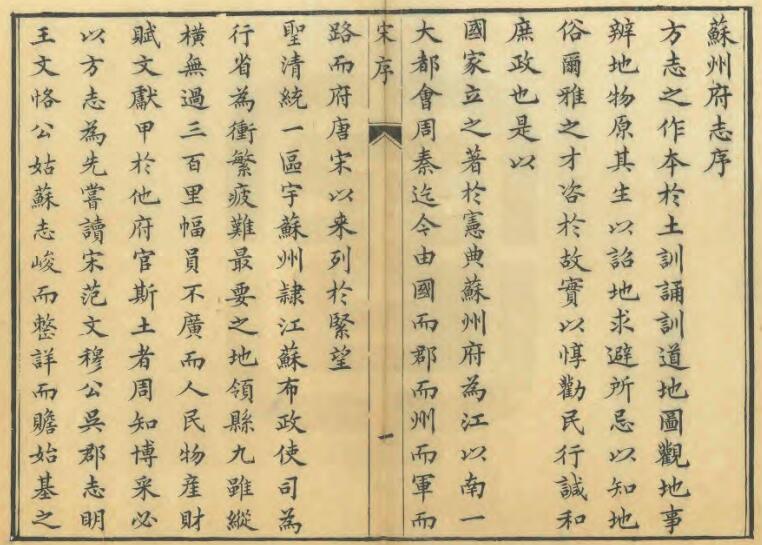 蘇州府志序
方志之作本於土訓誦訓道地圖觀地事
辨地物原其生以詔地求避所忌以知地
俗爾雅之才咨於故實以惇勸民行諴和
庶政也是以
國家立之著於憲典蘇州府為江以南一
大都會周秦迄今由國而郡而州而軍而
宋序
一
路而府唐宋以来列於緊望
聖清統一區宇蘇州隷江蘇布政使司為
行省為衝繁疲難最要之地領縣九雖縱
橫無過三百里幅員不廣而人民物産財
賦文獻甲於他府官斯土者周知博采必
以方志為先嘗讀宋范文穆公吳郡志明
王文恪公姑蘇志峻而整詳而贍始基之